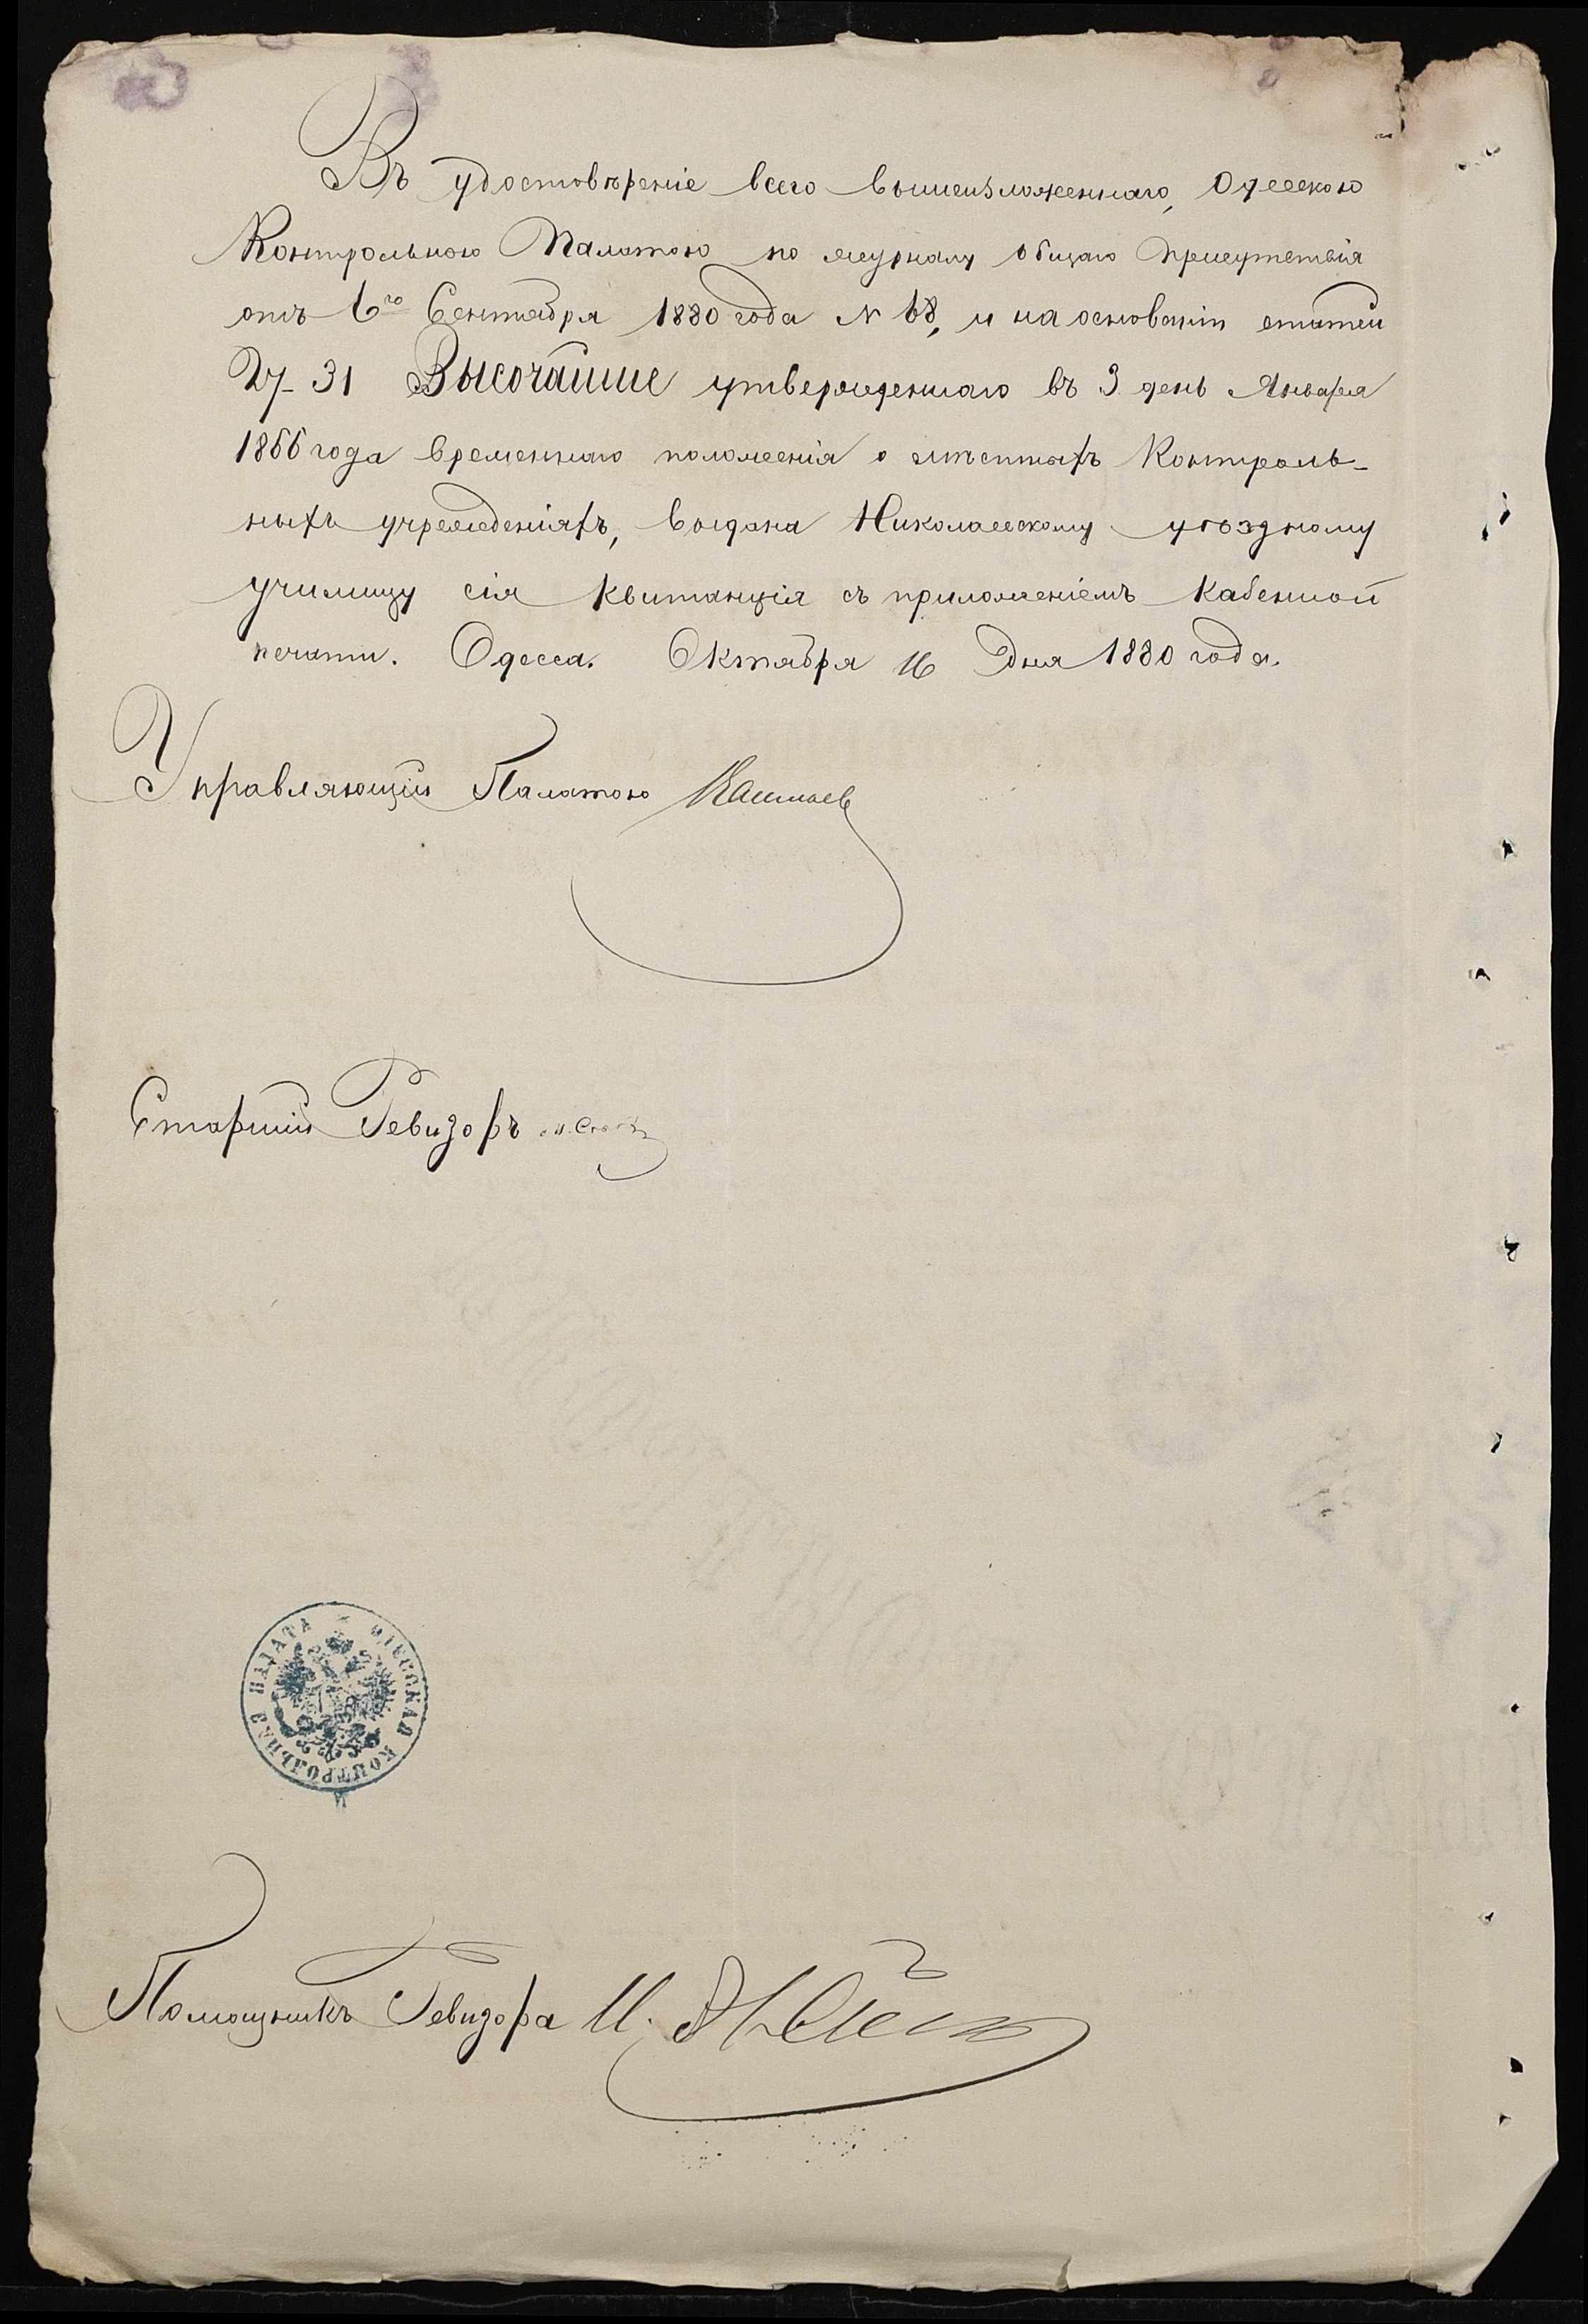 Въ удостовѣреніе всего вышеизложеннаго, Одесскою
Контрольною Палатою по журналу общаго присутствія
отъ 6го Сентября 1880 года № 68, и на основаніи статей
27-31 Высочайше утвержденнаго въ 3 день Января
1866 года временнаго положенія о мѣстныхъ Контроль-
ныхъ учрежденіяхъ, выдана Николаевскому уѣздному
училищу сія квитанція съ приложеніемъ казенной
печати. Одесса. Октября 16 дня 1880 года.
Управляющій Палатою
Старшій Ревизоръ
ОДЕССКАЯ КОНТРОЛЬНАЯ ПАЛАТА
Помощникъ Ревизора И.